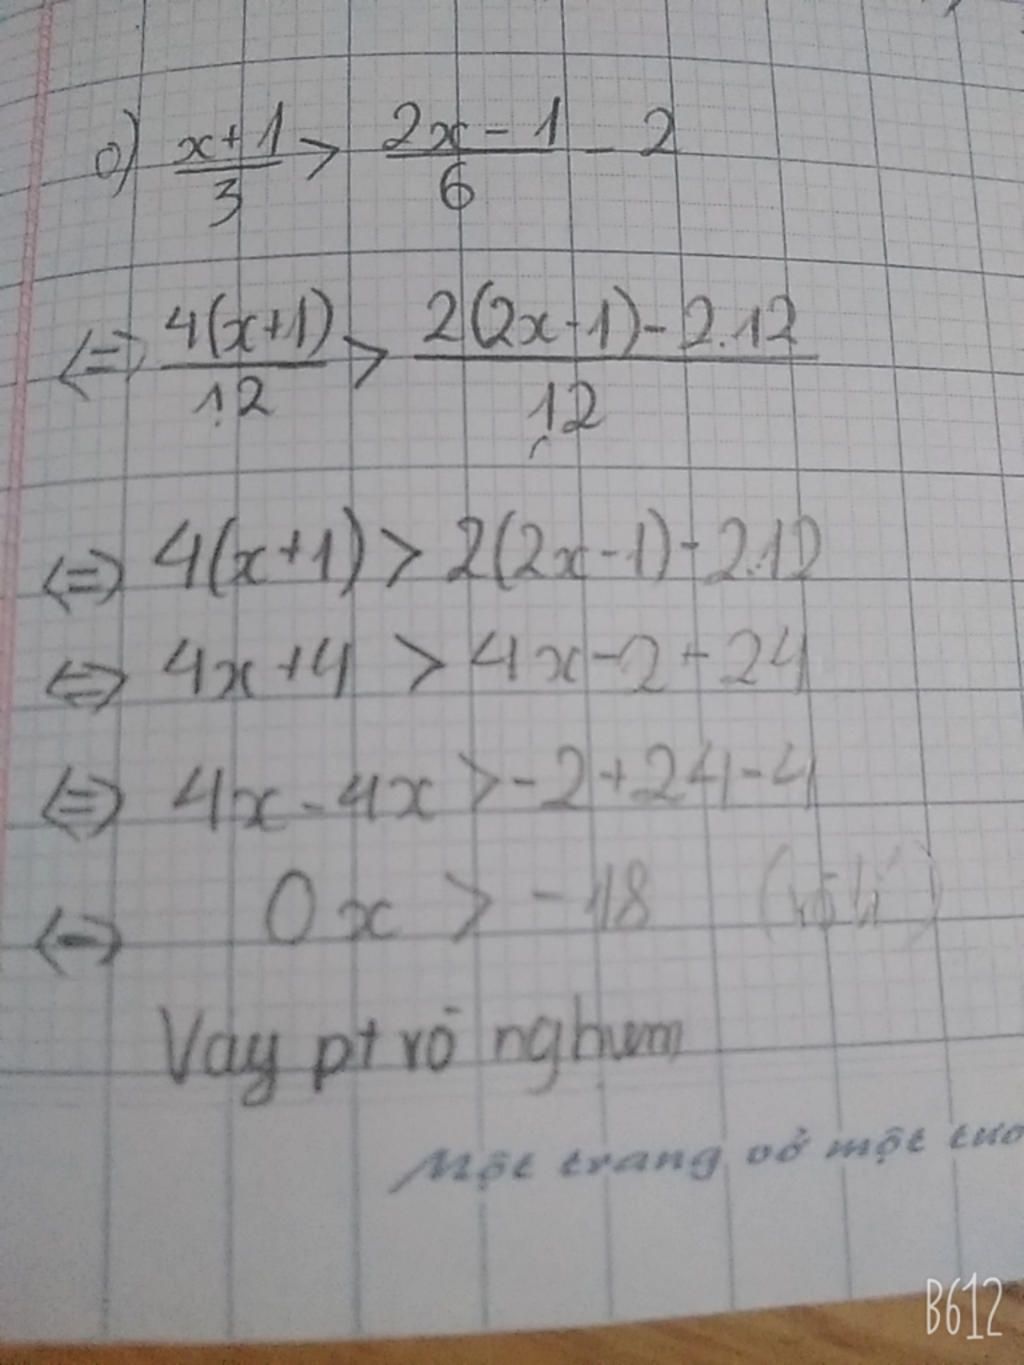 c) \frac{x+1}{3} > \frac{2x-1}{6} - 2
<=> \frac{4(x+1)}{12} > \frac{2(2x-1)-2.12}{12}
<=> 4(x+1) > 2(2x-1)-2.12
<=> 4x+4 > 4x-2-24
<=> 4x-4x > -2+24-4
<=> 0x > -18 (vô lí)
Vay pt vô nghiem
Một trang vở một
B612